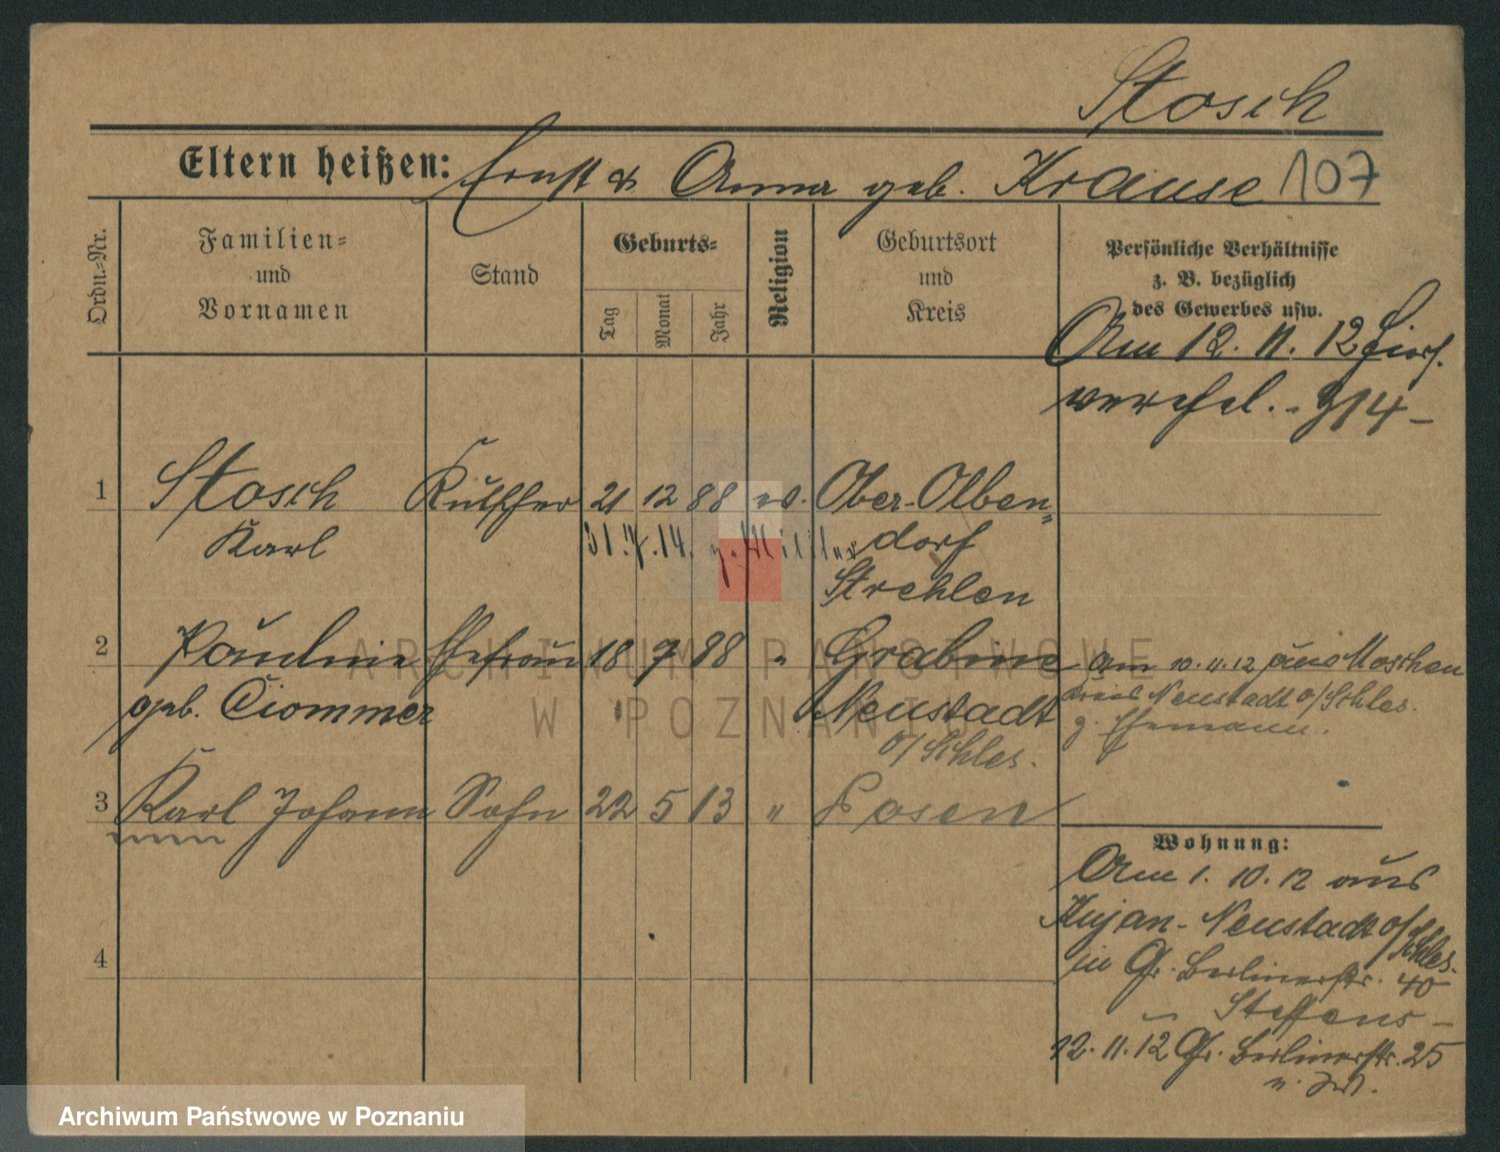 Stosch
Eltern heißen: Ernst & Anna geb. Krause 107
Ordn.-Nr.
Familien-
und
Vornamen
Stand
Geburts-
Tag
Monat
Jahr
Religion
Geburtsort
und
Kreis
Persönliche Verhältnisse
z. B. bezüglich
des Gewerbes usw.
Am 12. 11. 12
1 Stosch Kutscher 21 12 88 ev. Ober-Olben-
Karl 31.7.14. dorf
Strehlen
2 Pauline Ehefrau 18 7 88 " Grabine
geb. Ciommer Neustadt
o/Schles.
am 10.11.12 aus Moschen
Kreis Neustadt o/Schles.
z. Ehemann.
3 Karl Johann Sohn 22 5 13 " Posen
4
Wohnung:
Am 1. 10. 12 aus
Kujan-Neustadt o/Schles.
in Gr. Berlinerstr. 40
Steffens-
12. 11. 12 Gr. Berlinerstr. 25
ARCHIWUM PAŃSTWOWE
W POZNANIU
Archiwum Państwowe w Poznaniu